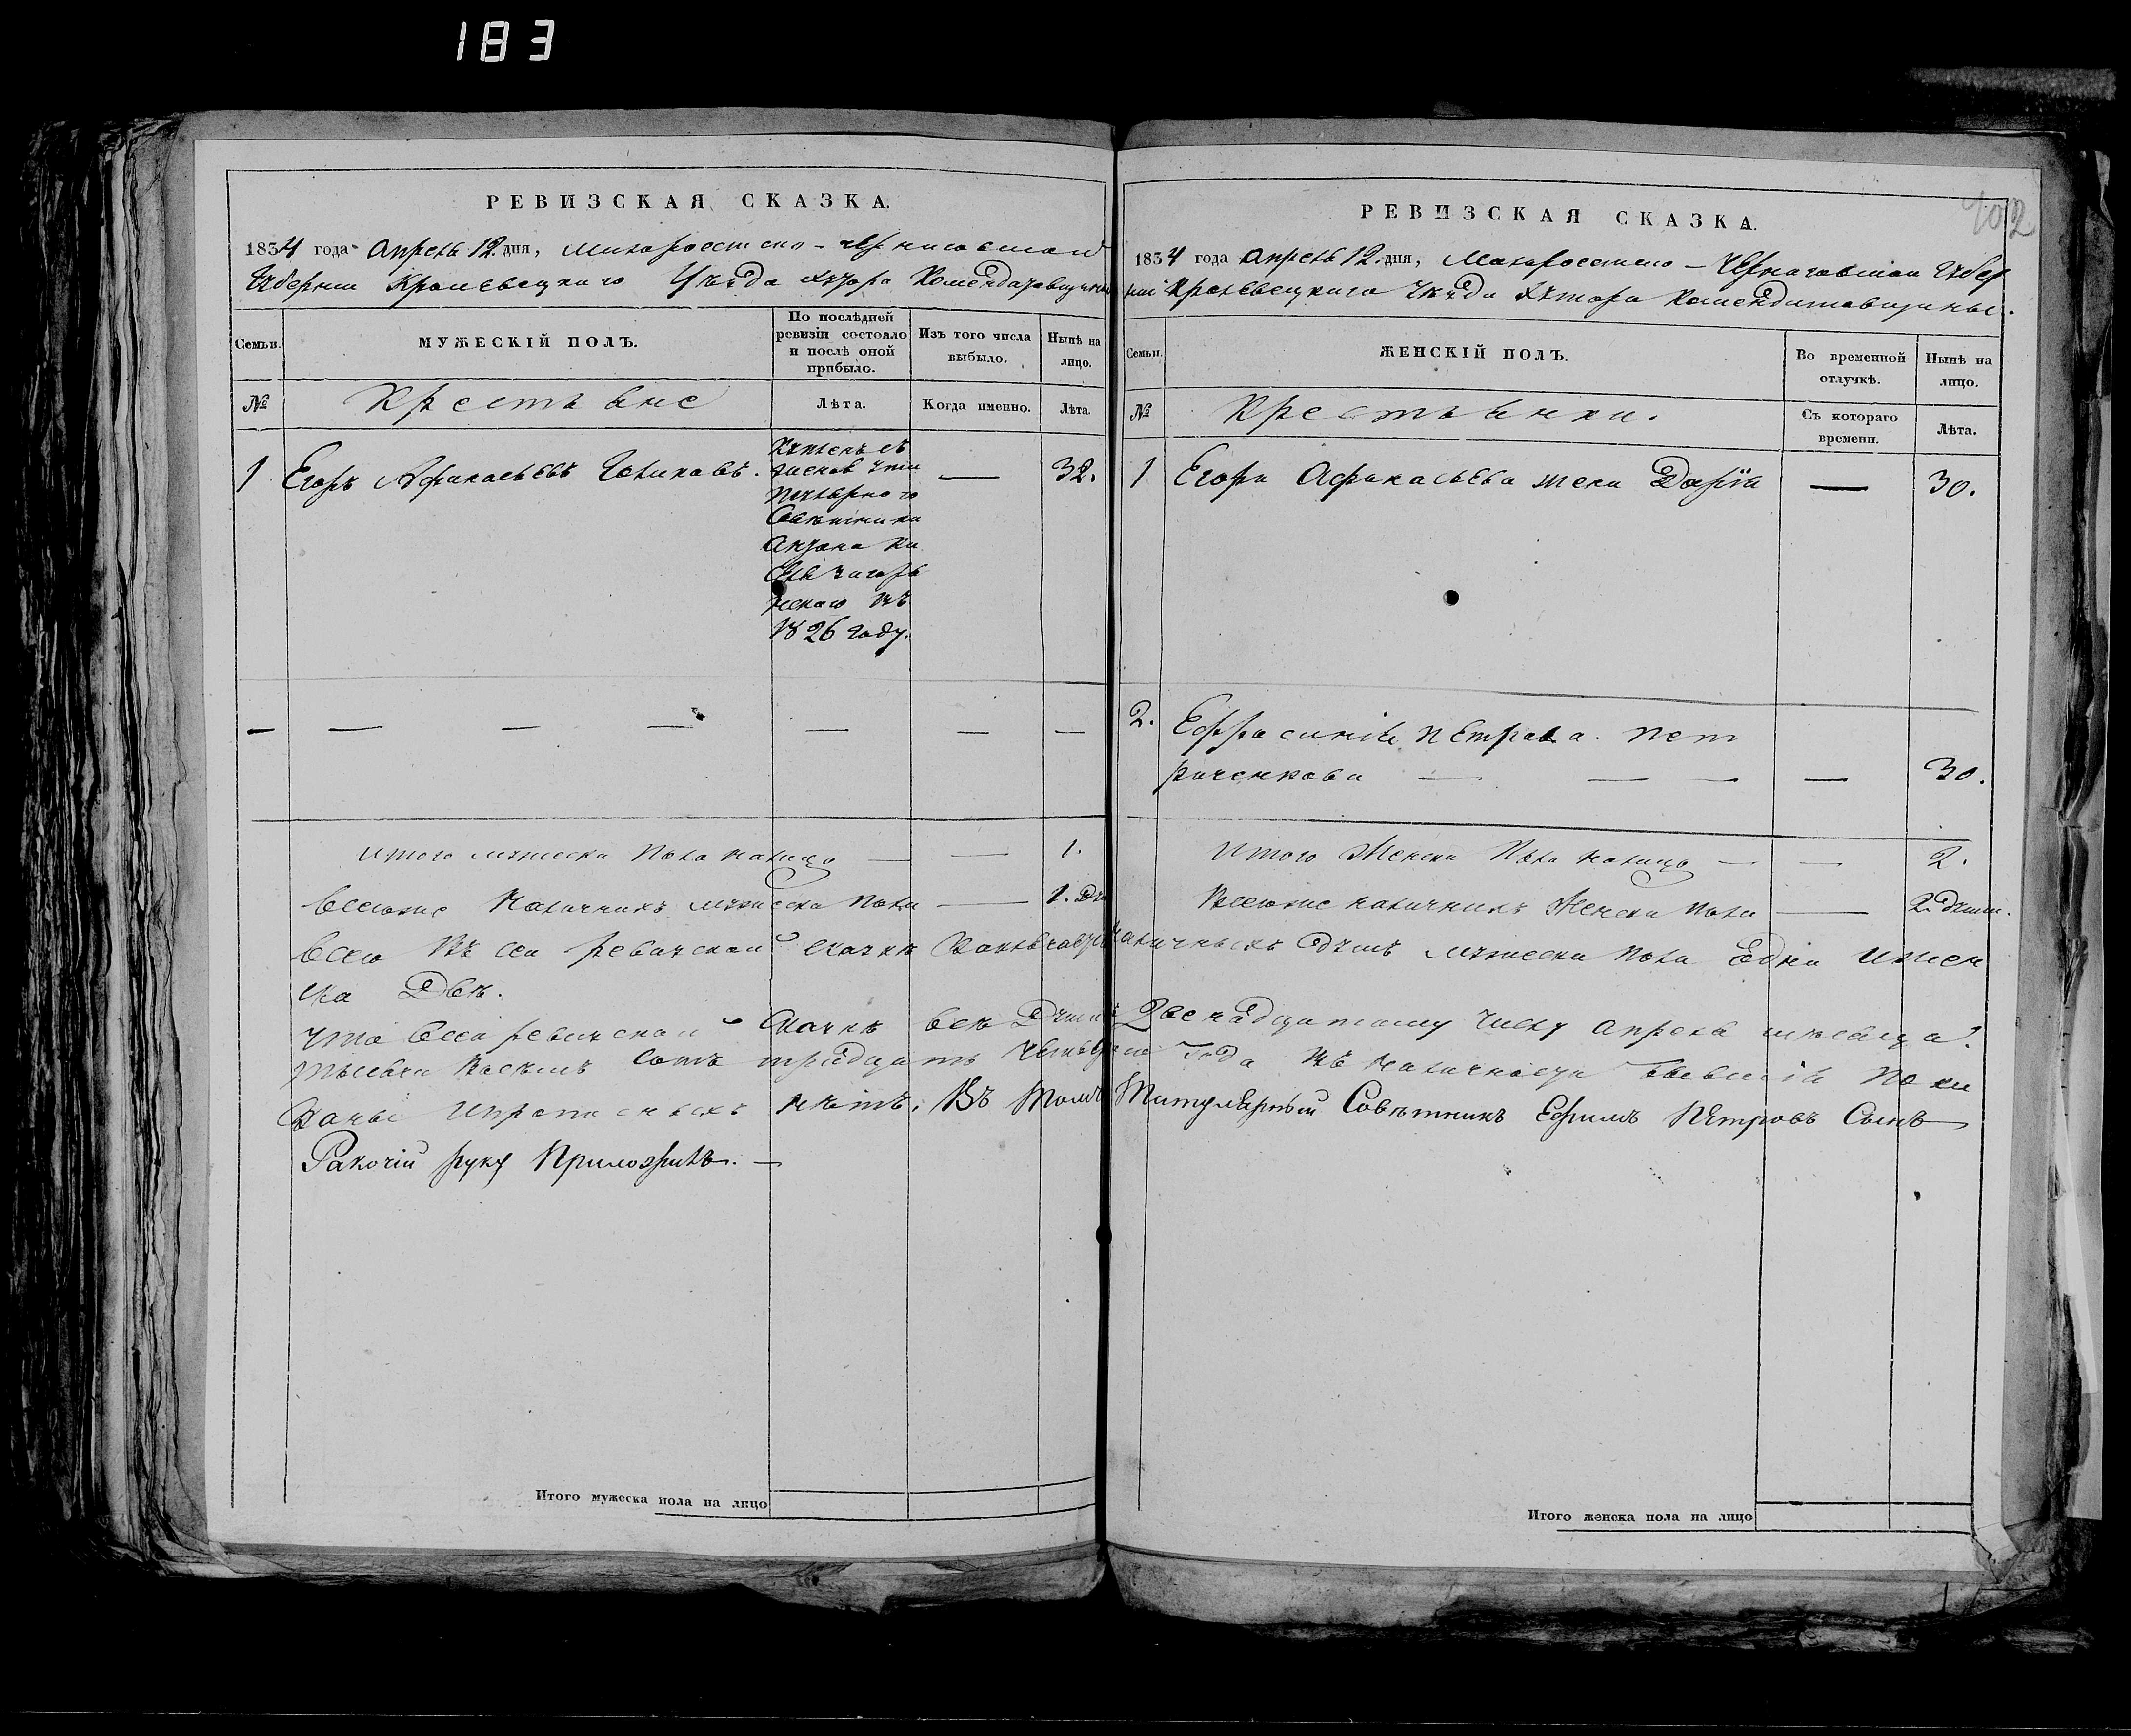 183
РЕВИЗСКАЯ СКАЗКА.
1834 года Апреля 12 дня, Малоросiйско-Черниговской
Губернии Кролевецкаго Уѣзда хутора Комендатовщины
Семьи.
МУЖЕСКІЙ ПОЛЪ.
По послѣдней ревизіи состояло и послѣ оной прибыло.
Изъ того числа выбыло.
Нынѣ на лицо.
№
Крестьяне
Лѣта.
Когда именно.
Лѣта.
1 Егоръ Афанасьевъ Голиковъ. — 32.
Купленъ
Совѣтника
Антона
въ
1826 году.
— — — — — — —
Итого мужеска пола налицо — — 1.
Всего же наличныхъ мужеска пола — 1. ду
РЕВИЗСКАЯ СКАЗКА.
402
1834 года Апреля 12 дня, Малоросiйско-Черниговской Губер
нiи Кролевецкаго Уѣзда хутора Комендатовщины.
Семьи.
ЖЕНСКІЙ ПОЛЪ.
Во временной отлучкѣ.
Нынѣ на лицо.
№
Крестьянки.
Съ котораго времени.
Лѣта.
1 Егора Афанасьева жена Дарія — 30.
2. Ефросинія Петрова Пет
риченкова — — — — 30.
Итого женска пола налицо — — 2.
Всего же наличныхъ женска пола — 2. души.
Всего въ сей ревизской сказкѣ наличныхъ душъ мужеска пола Една и жен
ска Двѣ.
Что в сей ревизской сказкѣ всѣ души Двенадцатому числу Апреля месяца
тысяча восемь сотъ тридцать четвертаго года въ наличности бывшiя пока
заны и прописныхъ нѣтъ. Въ томъ Титулярный Совѣтникъ Ефимъ Петровъ Сынъ
Ракочій руку Приложилъ. —
Итого мужеска пола на лицо
Итого женска пола на лицо